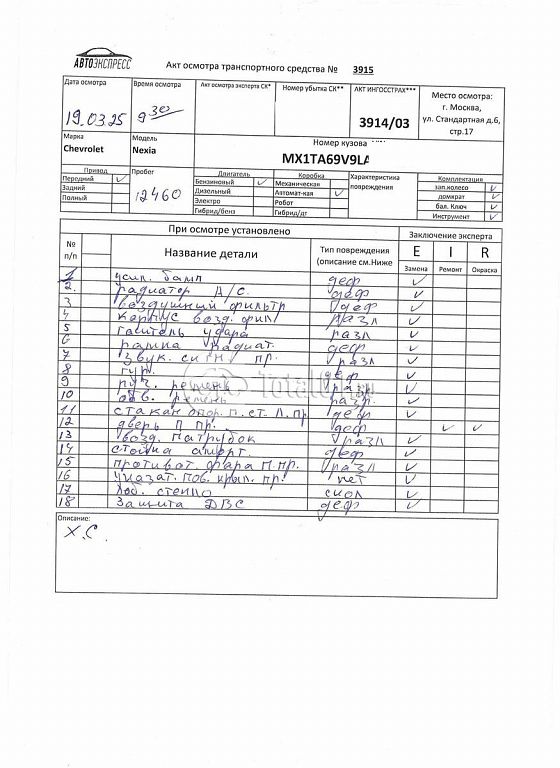 АВТОЭКСПРЕСС
Акт осмотра транспортного средства № 3915
Дата осмотра 19.03.25
Время осмотра 9 30
Акт осмотра эксперта СК*
Номер убытка СК**
АКТ ИНГОССТРАХ*** 3914/03
Место осмотра:
г. Москва,
ул. Стандартная д.6,
стр.17
Марка Chevrolet
Модель Nexia
Номер кузова
MX1TA69V9LA
Привод
Передний ✓
Задний
Полный
Пробег 12460
Двигатель
Бензиновый ✓
Дизельный
Электро
Гибрид/бенз
Коробка
Механическая
Автомат-кая ✓
Робот
Гибрид/дг
Характеристика
повреждения
Комплектация
зап.колесо ✓
домкрат ✓
бал. Ключ ✓
Инструмент ✓
При осмотре установлено
Заключение эксперта
№ п/п
Название детали
Тип повреждения
(описание см.Ниже
E I R
Замена Ремонт Окраска
1 усил. бамп деф ✓
2. радиатор А/С. деф ✓
3 воздушный фильтр деф ✓
4 корпус возд. фил разл ✓
5 гаситель удара разл ✓
6 рамка радиат. деф ✓
7 звук. сигн. пр. разл ✓
8 деф ✓
9 ремень разр. ✓
10 ремень разр. ✓
11 стакан опор. п. ст. Л.пр деф ✓
12 дверь П пр. деф ✓ ✓
13 возд. патрубок разл ✓
14 стойка аморт. деф ✓
15 противот. фара П.пр. разл ✓
16 указат. пов. крыл. пр. нет ✓
17 лоб. стекло скол ✓
18 Защита ДВС деф ✓
Описание:
Х.С.
TotalCar